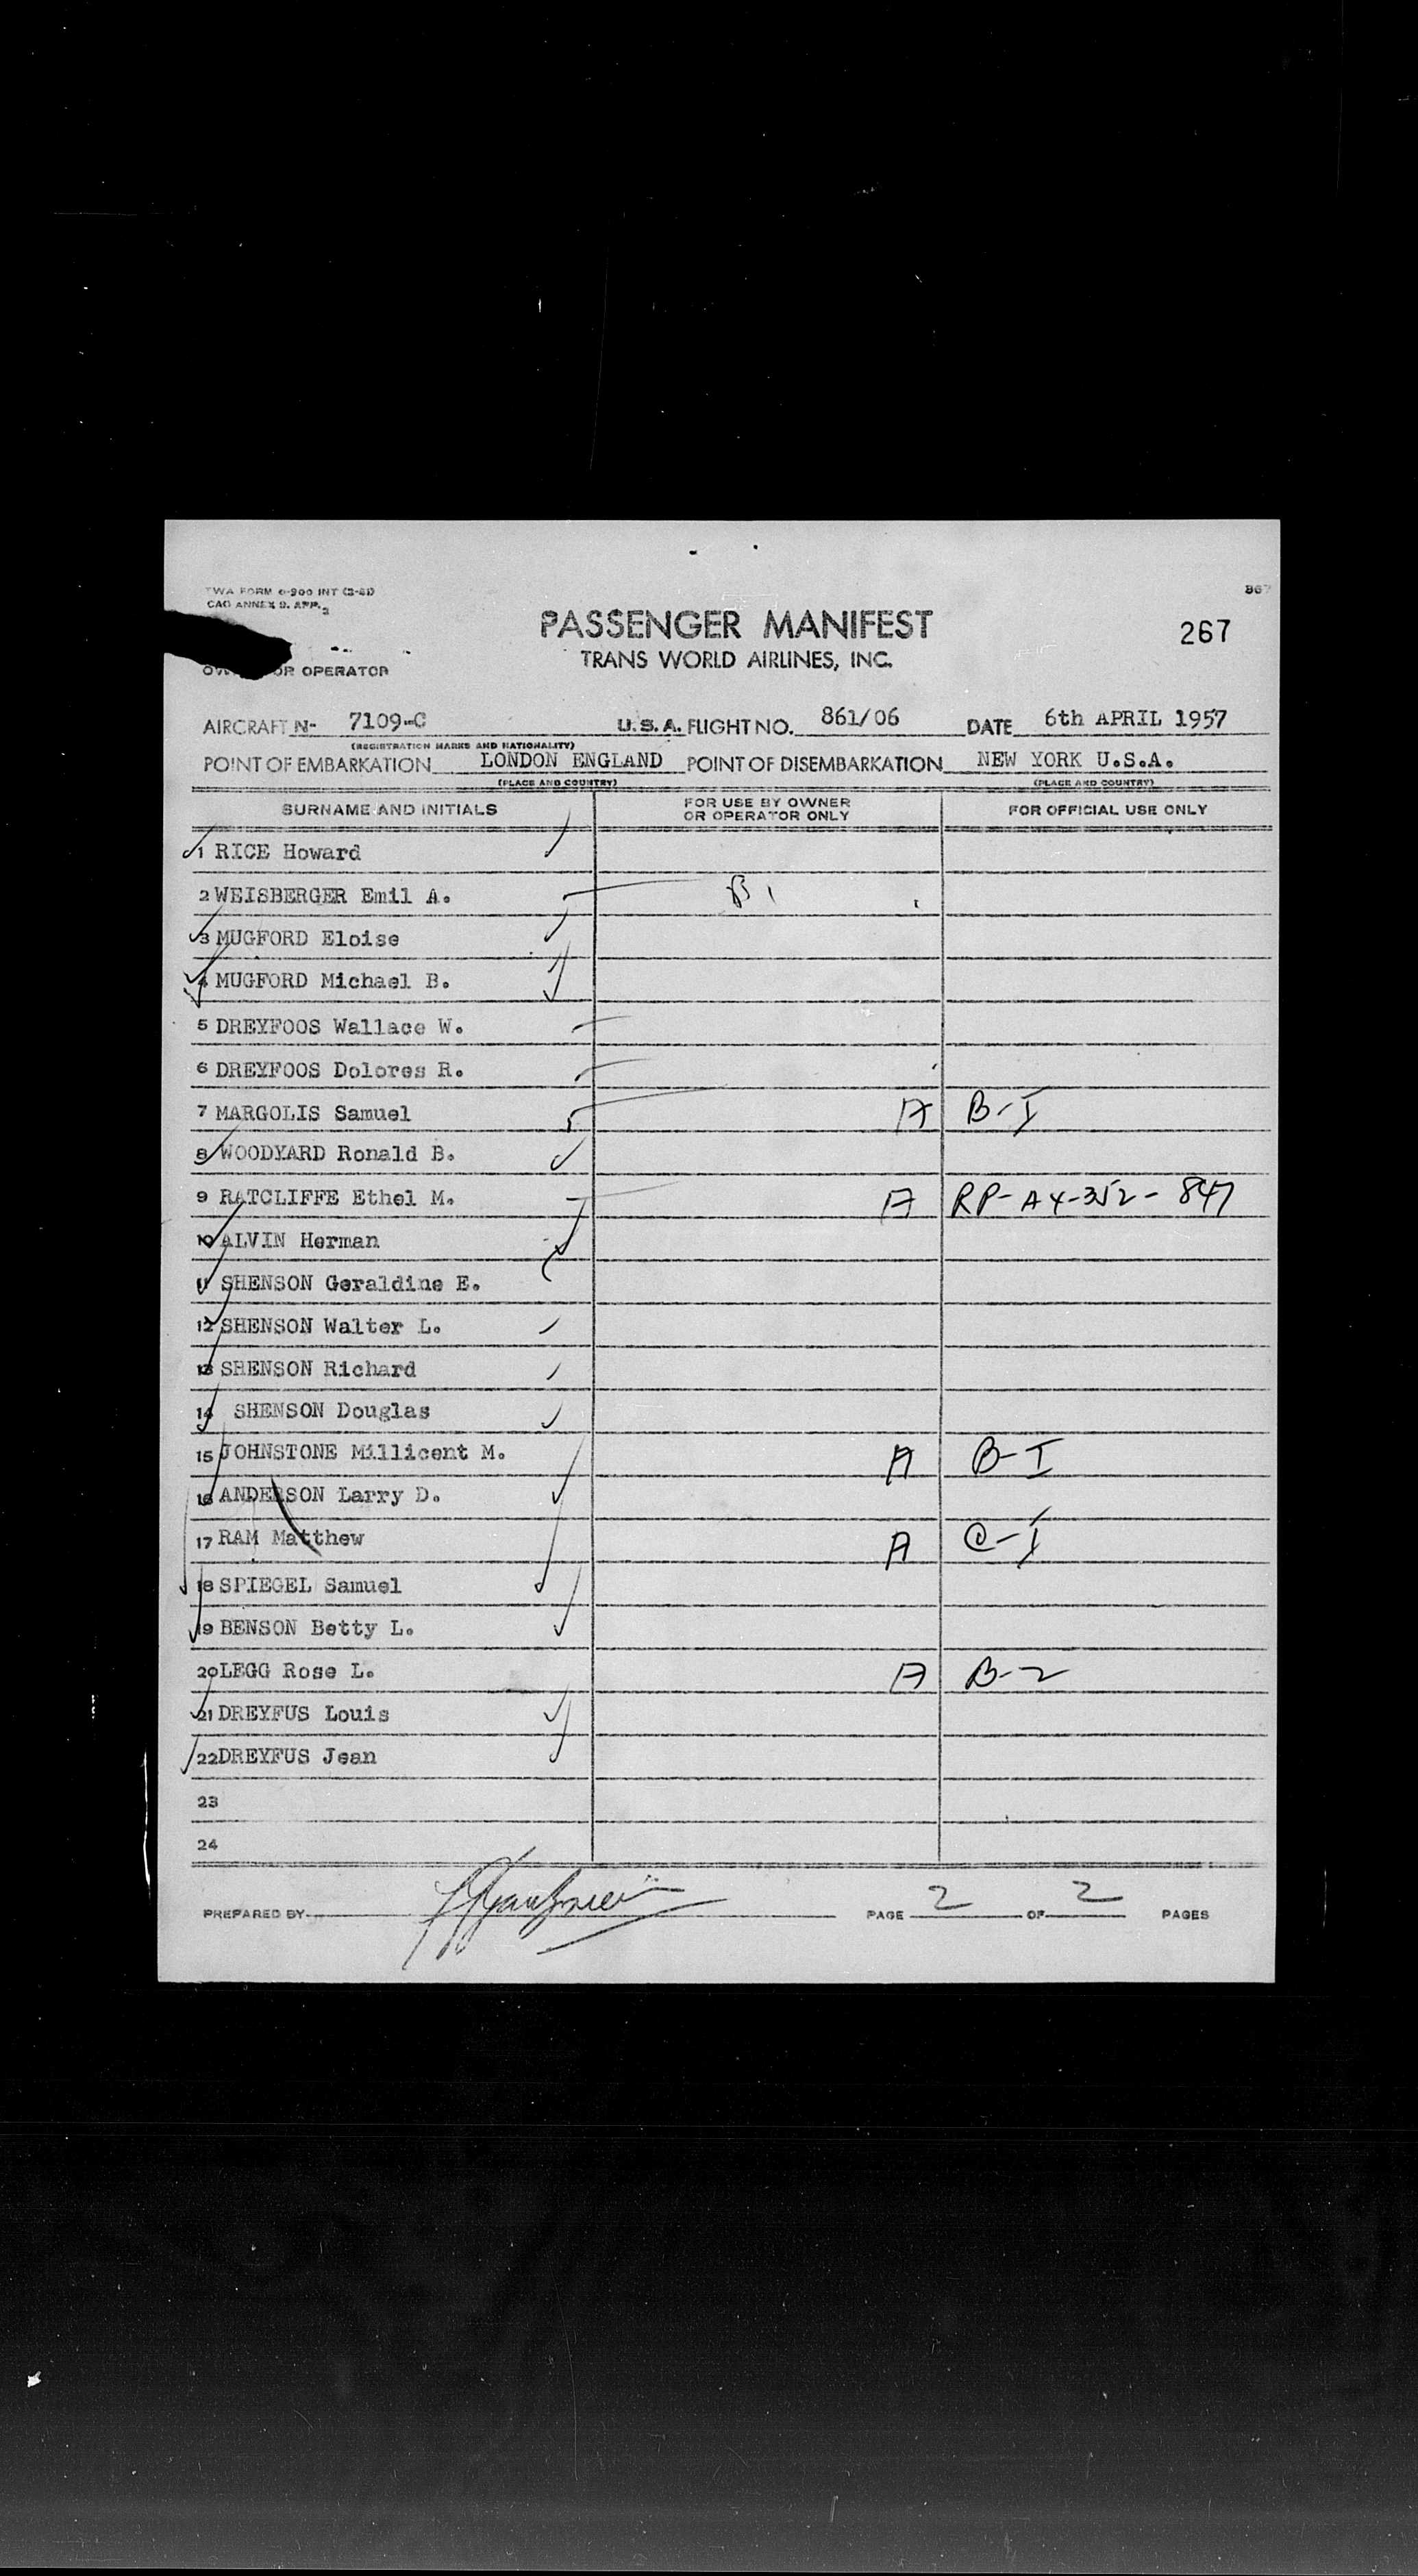 TWA FORM 0-900 INT
CAO ANNEX 9. APP. 2
PASSENGER MANIFEST
267
TRANS WORLD AIRLINES, INC.
OR OPERATOR
AIRCRAFT N- 7109-C U.S.A. FLIGHT NO. 861/06 DATE 6th APRIL 1957
(REGISTRATION MARKS AND NATIONALITY)
POINT OF EMBARKATION LONDON ENGLAND POINT OF DISEMBARKATION NEW YORK U.S.A.
(PLACE AND COUNTRY) (PLACE AND COUNTRY)
SURNAME AND INITIALS FOR USE BY OWNER OR OPERATOR ONLY FOR OFFICIAL USE ONLY
1 RICE Howard
2 WEISBERGER Emil A. B1
3 MUGFORD Eloise
4 MUGFORD Michael B.
5 DREYFOOS Wallace W.
6 DREYFOOS Dolores R.
7 MARGOLIS Samuel A B-I
8 WOODYARD Ronald B.
9 RATCLIFFE Ethel M. A RP-A4-352-847
10 ALVIN Herman
11 SHENSON Geraldine E.
12 SHENSON Walter L.
13 SHENSON Richard
14 SHENSON Douglas
15 JOHNSTONE Millicent M. A B-I
16 ANDERSON Larry D.
17 RAM Matthew A C-I
18 SPIEGEL Samuel
19 BENSON Betty L.
20 LEGG Rose L. A B-2
21 DREYFUS Louis
22 DREYFUS Jean
23
24
PREPARED BY PAGE 2 OF 2 PAGES